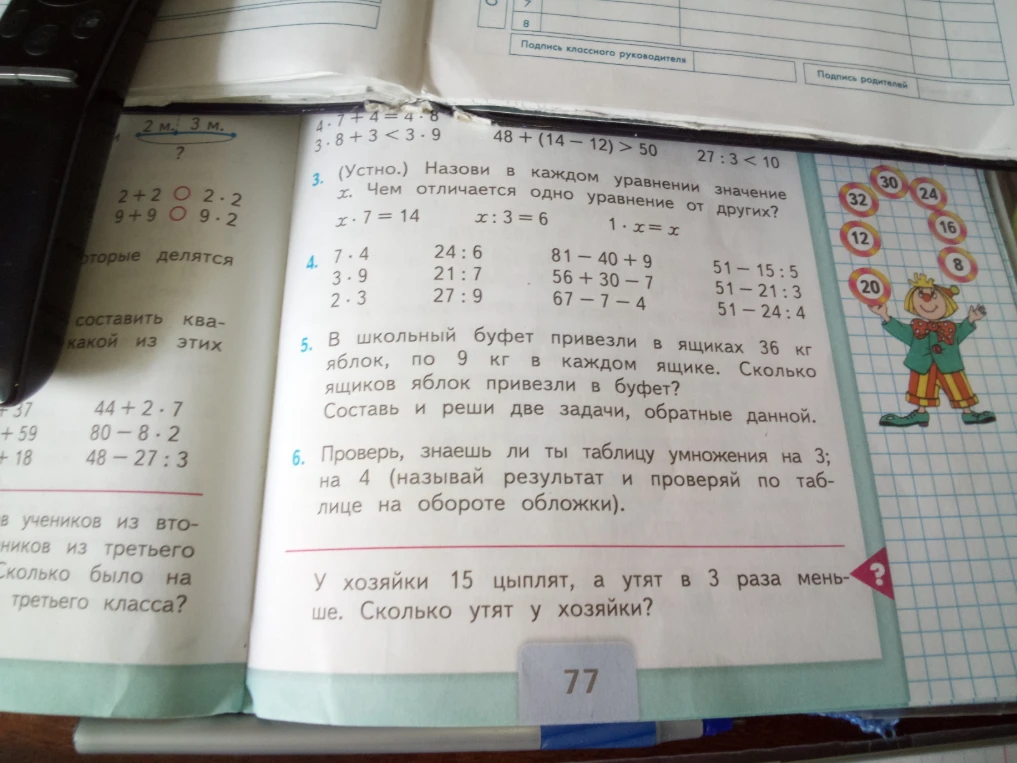 7
8
Подпись классного руководителя
Подпись родителей
2 м. 3 м.
?
2 + 2 ○ 2 · 2
9 + 9 ○ 9 · 2
делятся
составить ква-
какой из этих
+ 37 44 + 2 · 7
+ 59 80 − 8 · 2
+ 18 48 − 27 : 3
в учеников из вто-
ников из третьего
Сколько было на
третьего класса?
4 · 7 + 4 = 4 · 8
3 · 8 + 3 < 3 · 9 48 + (14 − 12) > 50 27 : 3 < 10
3. (Устно.) Назови в каждом уравнении значение
x. Чем отличается одно уравнение от других?
x · 7 = 14 x : 3 = 6 1 · x = x
4. 7 · 4 24 : 6 81 − 40 + 9 51 − 15 : 5
3 · 9 21 : 7 56 + 30 − 7 51 − 21 : 3
2 · 3 27 : 9 67 − 7 − 4 51 − 24 : 4
5. В школьный буфет привезли в ящиках 36 кг
яблок, по 9 кг в каждом ящике. Сколько
ящиков яблок привезли в буфет?
Составь и реши две задачи, обратные данной.
6. Проверь, знаешь ли ты таблицу умножения на 3;
на 4 (называй результат и проверяй по таб-
лице на обороте обложки).
У хозяйки 15 цыплят, а утят в 3 раза мень-
ше. Сколько утят у хозяйки?
?
77
30
24
32
16
12
8
20